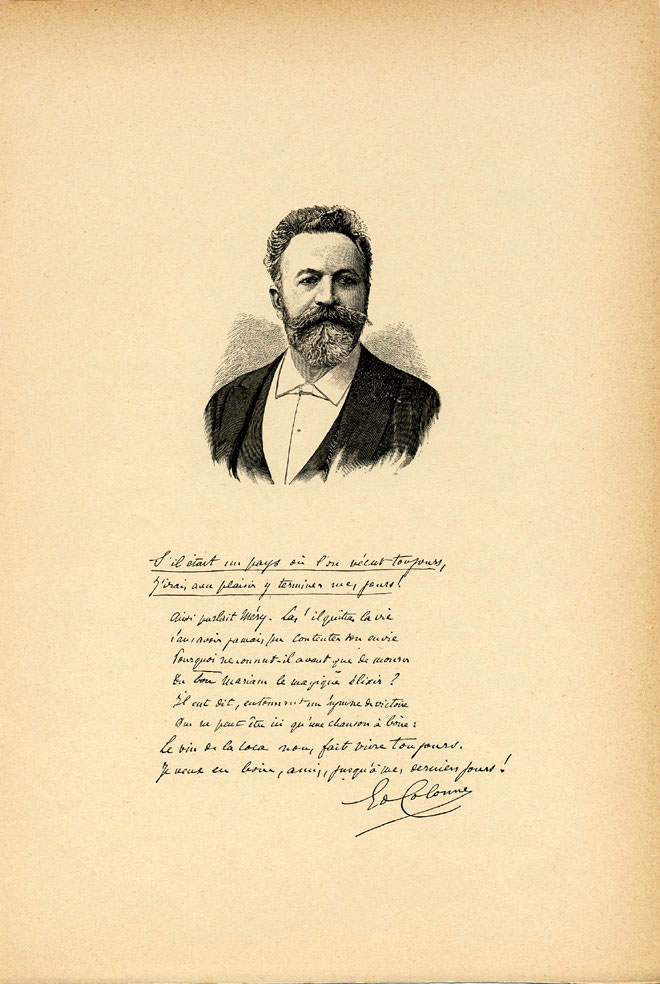 S'il était un pays où l'on vécut toujours,
J'irais avec plaisir y terminer mes jours!
Ainsi parlait Méry. Las! il quitta la vie
sans avoir jamais pu contenter son envie
Pourquoi ne connut-il avant que de mourir
Du bon Mariani le magique élixir?
Il eut dit, entonnant un hymne de victoire
Qui ne peut être ici qu'une chanson à boire:
Le vin de la Coca nous fait vivre toujours.
Je veux en boire, amis, jusqu'à mes derniers jours!
Ed Colonne